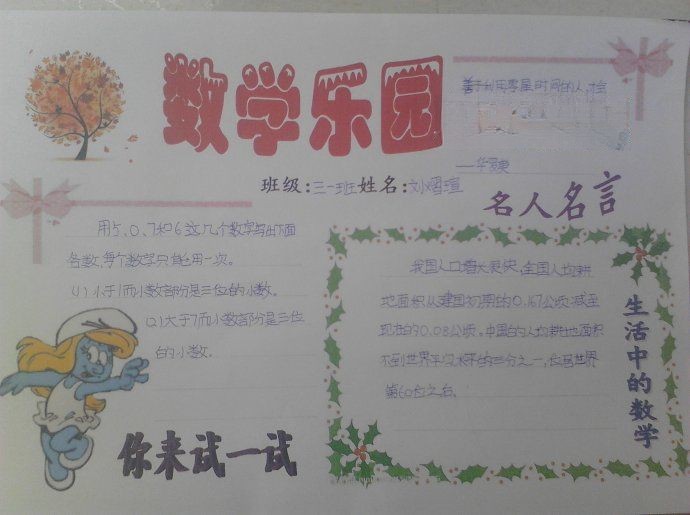 数学乐园
善于利用零星时间的人,才会
——华罗庚
班级:三一班姓名:刘熠瑄
名人名言
用5、0、7和6这几个数字写出下面
各数,每个数字只能用一次。
(1)小于1而小数部分是三位的小数。
(2)大于7而小数部分是三位
的小数。
你来试一试
我国人口增长更快,全国人均耕
地面积从建国初期的0.167公顷减至
现在的0.08公顷。中国的人均耕地面积
不到世界平均水平的三分之一,位居世界
第60位之后。
生活中的数学